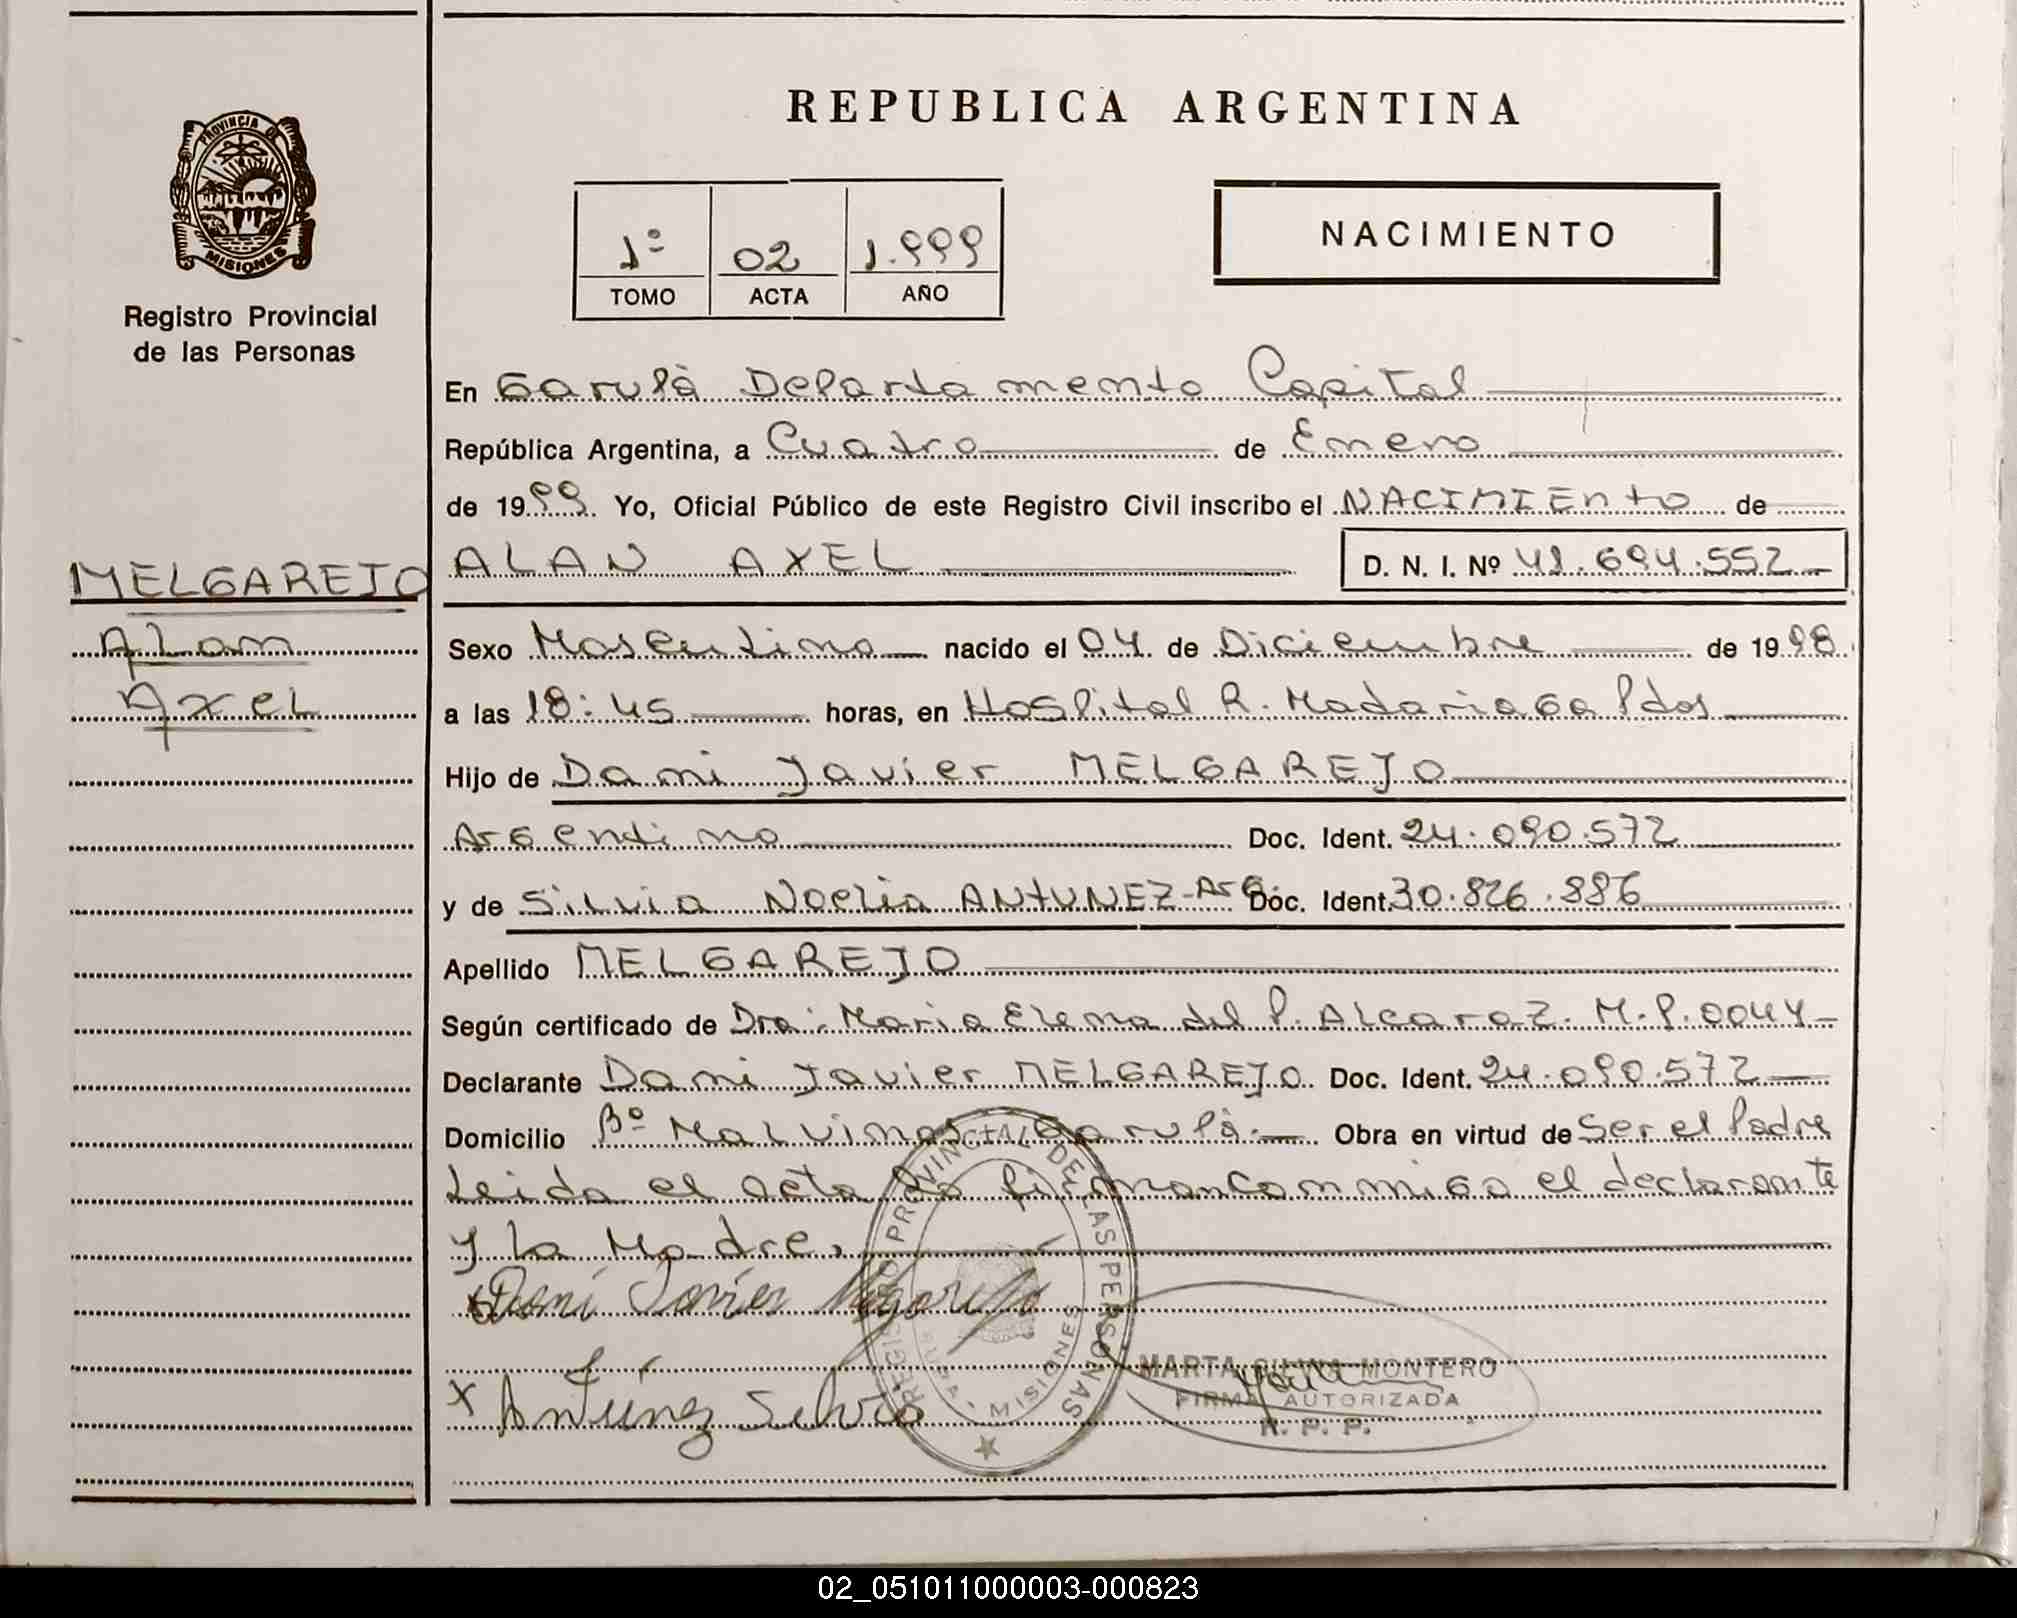 REPUBLICA ARGENTINA
PROVINCIA DE
MISIONES
Registro Provincial
de las Personas
1º 02 1.999
TOMO ACTA AÑO
NACIMIENTO
En Garupá Departamento Capital
República Argentina, a Cuatro de Enero
de 1999. Yo, Oficial Público de este Registro Civil inscribo el NACIMIENTO de
MELGAREJO
Alan
Axel
ALAN AXEL D. N. I. Nº 41.694.552
Sexo Masculino nacido el 04 de Diciembre de 1998.
a las 18:45 horas, en Hospital R. Madariaga Pdas
Hijo de Dani Javier MELGAREJO
Argentino Doc. Ident. 24.090.572
y de Silvia Noelia ANTUNEZ-Arg. Doc. Ident. 30.826.886
Apellido MELGAREJO
Según certificado de Dra: Maria Elena del P. Alcaraz. M.P. 0044
Declarante Dani Javier MELGAREJO Doc. Ident. 24.090.572
Domicilio Bº Malvinas Garupá. Obra en virtud de Ser el Padre
Leida el acta la firman conmigo el declarante
y la Madre.
x Dani Javier Melgarejo
x Antúnez Silvia
REGISTRO PROVINCIAL DE LAS PERSONAS
MISIONES
MARTA MONTERO
FIRMA AUTORIZADA
R. P. P.
02_051011000003-000823